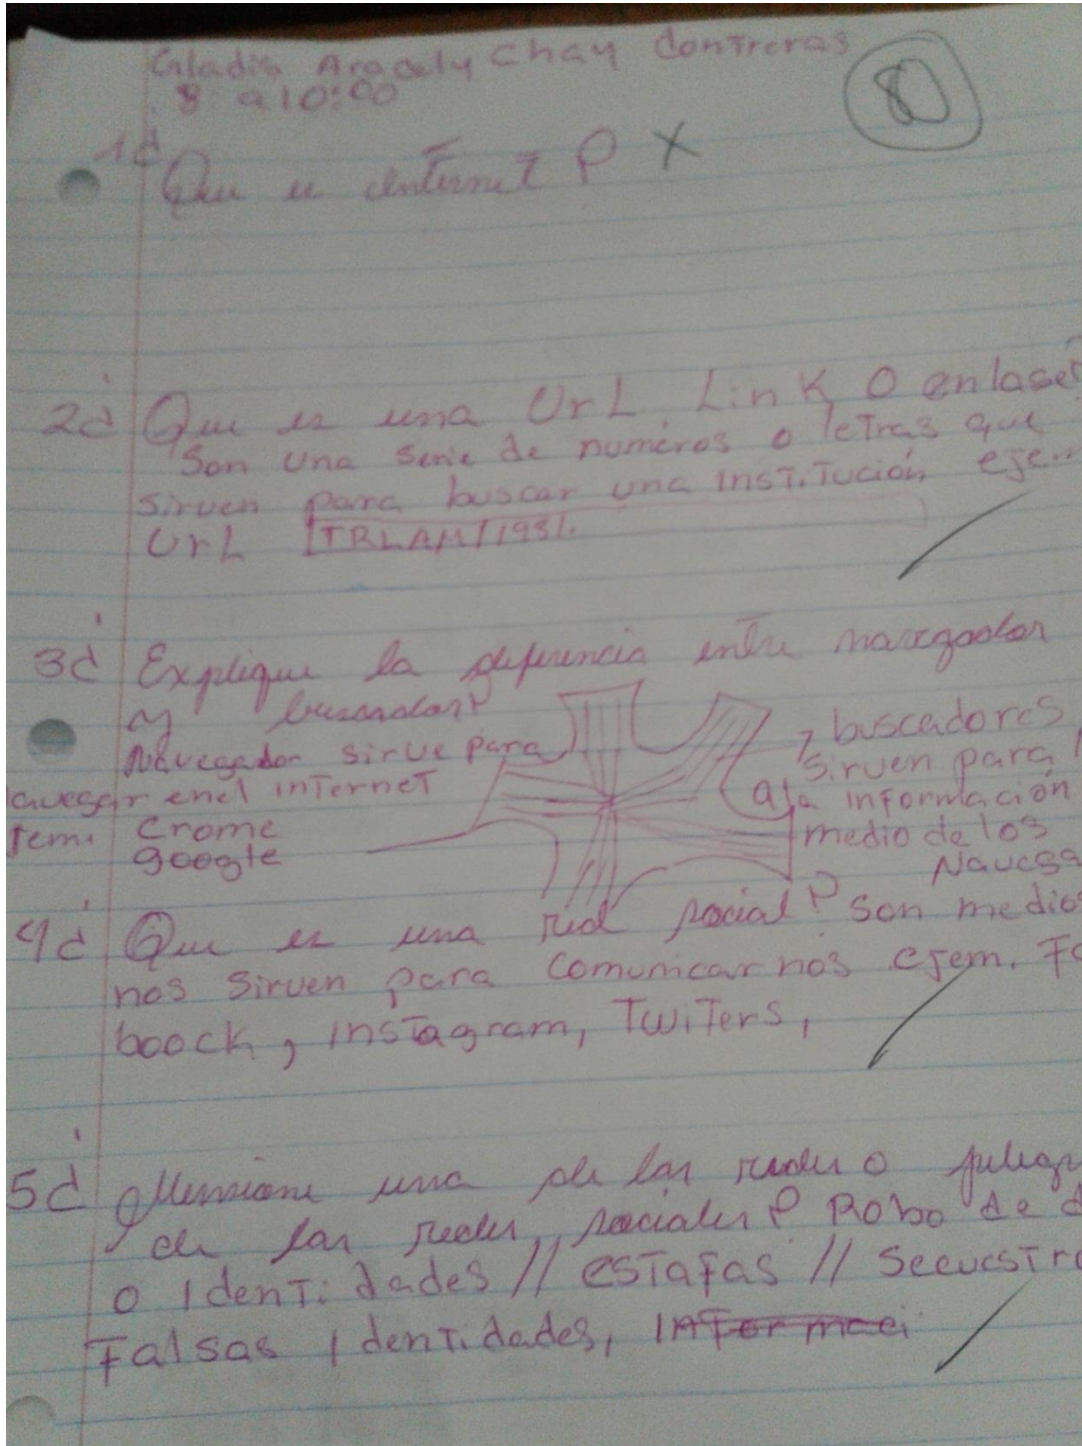 Gladis Aracely Chay Contreras
8 a 10:00
80
1¿ Que es internet? X
2¿ Que es una UrL, LinK O enlase?
Son una serie de numéros o letras que
sirven para buscar una institución ejem
UrL TRLAM/1981.
3¿ Explique la diferencia entre navegador
y buscador?
Navegador sirve para
navegar en el internet
crome
google
buscadores
sirven para
información
medio de los
Navega
4¿ Que es una red social? Son medios
nos sirven para comunicar nos ejem. Fa
boock, instagram, Twiters,
5¿ Mensione una de las redes o peligr
de las redes sociales? Robo de d
o identidades // estafas // secuestro
Falsas identidades, Informaci